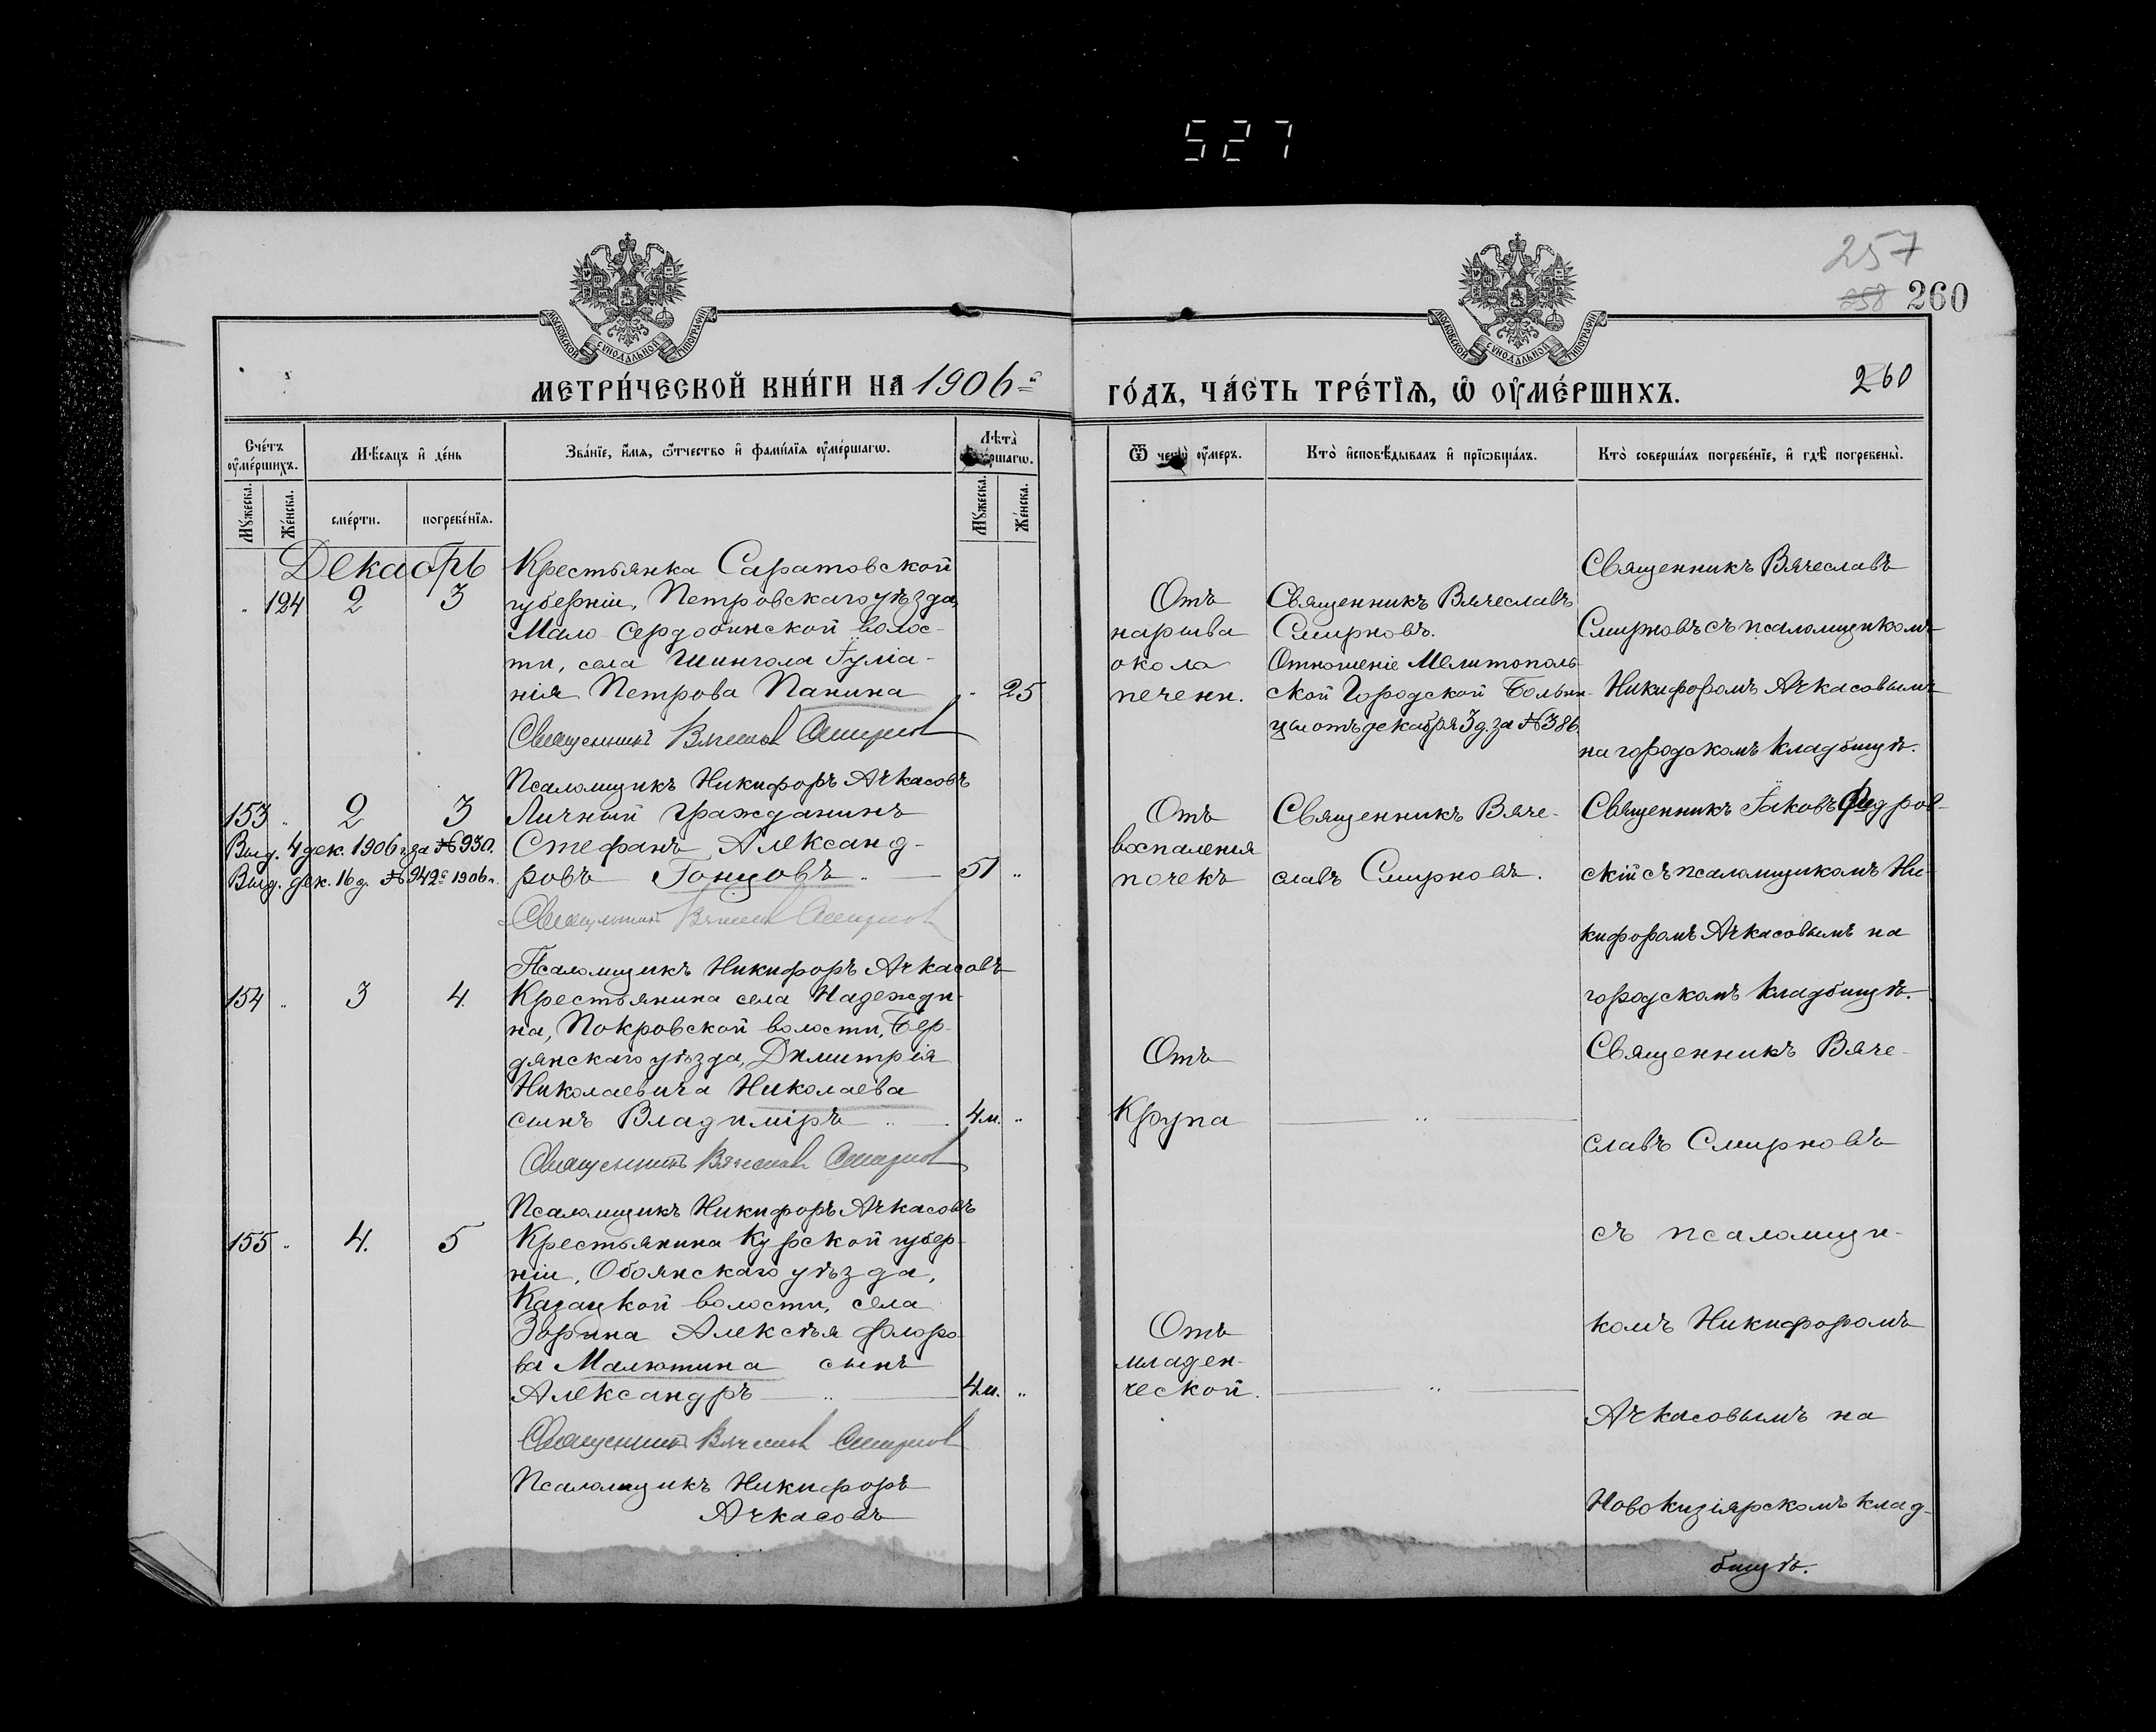 527
257
258 260
МОСКОВСКОЙ СУНОДАЛЬНОЙ ТИПОГРАФІИ
МОСКОВСКОЙ СУНОДАЛЬНОЙ ТИПОГРАФІИ
МЕТРИ́ЧЕСКОЙ КНИ́ГИ НА 1906-й ГО́ДЪ, ЧА́СТЬ ТРЕ́ТЇѦ, Ѡ҆ ОУ҆МЕ́РШИХЪ.
260
Сче́тъ оу҆ме́ршихъ.
Мѣ́сяцъ и҆ де́нь
Зва́нїе, и҆́мя, ѻ҆́тчество и҆ фами́лїя оу҆ме́ршагѡ.
Лѣта̀
Ѿ чегѡ̀ оу҆́меръ.
Кто̀ и҆сповѣ́дывалъ и҆ прїѡбща́лъ.
Кто̀ соверша́лъ погребе́нїе, и҆ гдѣ̀ погребены̀.
Мꙋ́жеска.
Же́нска.
сме́рти.
погребе́нїя.
Мꙋ́жеска.
Же́нска.
Декабрь
„ 124 2 3
Крестьянка Саратовской
губерніи, Петровскаго уѣзда,
Мало-Сердобинской волос-
ти, села Шингола Іуліа-
нія Петрова Панина „ 25
Священникъ Вячеслав Смирнов
Псаломщикъ Никифоръ Ачкасовъ
Отъ
нарыва
около
печени.
Священникъ Вячеславъ
Смирновъ.
Отношеніе Мелитополь-
ской Городской Больни-
цы отъ декабря 3 д. за № 386.
Священникъ Вячеславъ
Смирновъ съ псаломщикомъ
Никифоромъ Ачкасовымъ
на городскомъ кладбищѣ.
153 „ 2 3
Выд. 4 дек. 1906 г. за № 930.
Выд. дек. 16 д. № 942 1906 г.
Личный гражданинъ
Стефанъ Александ-
ровъ Гонцовъ „ 51 „
Священникъ Вячеслав Смирнов
Псаломщикъ Никифоръ Ачкасовъ
Отъ
воспаленія
почекъ
Священникъ Вяче-
славъ Смирновъ.
Священникъ Іаковъ
скій съ псаломщикомъ Ни-
кифоромъ Ачкасовымъ на
городскомъ кладбищѣ.
154 „ 3 4.
Крестьянина села Надежди-
на, Покровской волости, Бер-
дянскаго уѣзда, Димитрія
Николаевича Николаева
сынъ Владиміръ „ 4 м. „
Священникъ Вячеслав Смирнов
Псаломщикъ Никифоръ Ачкасовъ
Отъ
Крупа
„
155 „ 4. 5
Крестьянина Курской губер-
ніи, Обоянскаго уѣзда,
Казацкой волости, села
Зорина Алексѣя Флоро-
ва Малютина сынъ
Александръ „ 4 м. „
Священникъ Вячеслав Смирнов
Псаломщикъ Никифоръ
Ачкасовъ
Отъ
младен-
ческой.
„
Священникъ Вяче-
славъ Смирновъ
съ псаломщи-
комъ Никифоромъ
Ачкасовымъ на
Новокизіярскомъ клад-
бищѣ.